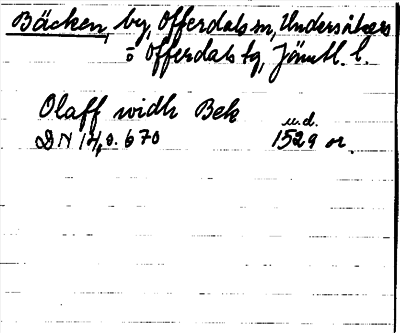 Bäcken, by, Offerdals sn, Undersåkers
o Offerdals tg, Jämtl. l.
Olaff widh Bek
u.d.
DN 14, s. 670 1529 or.